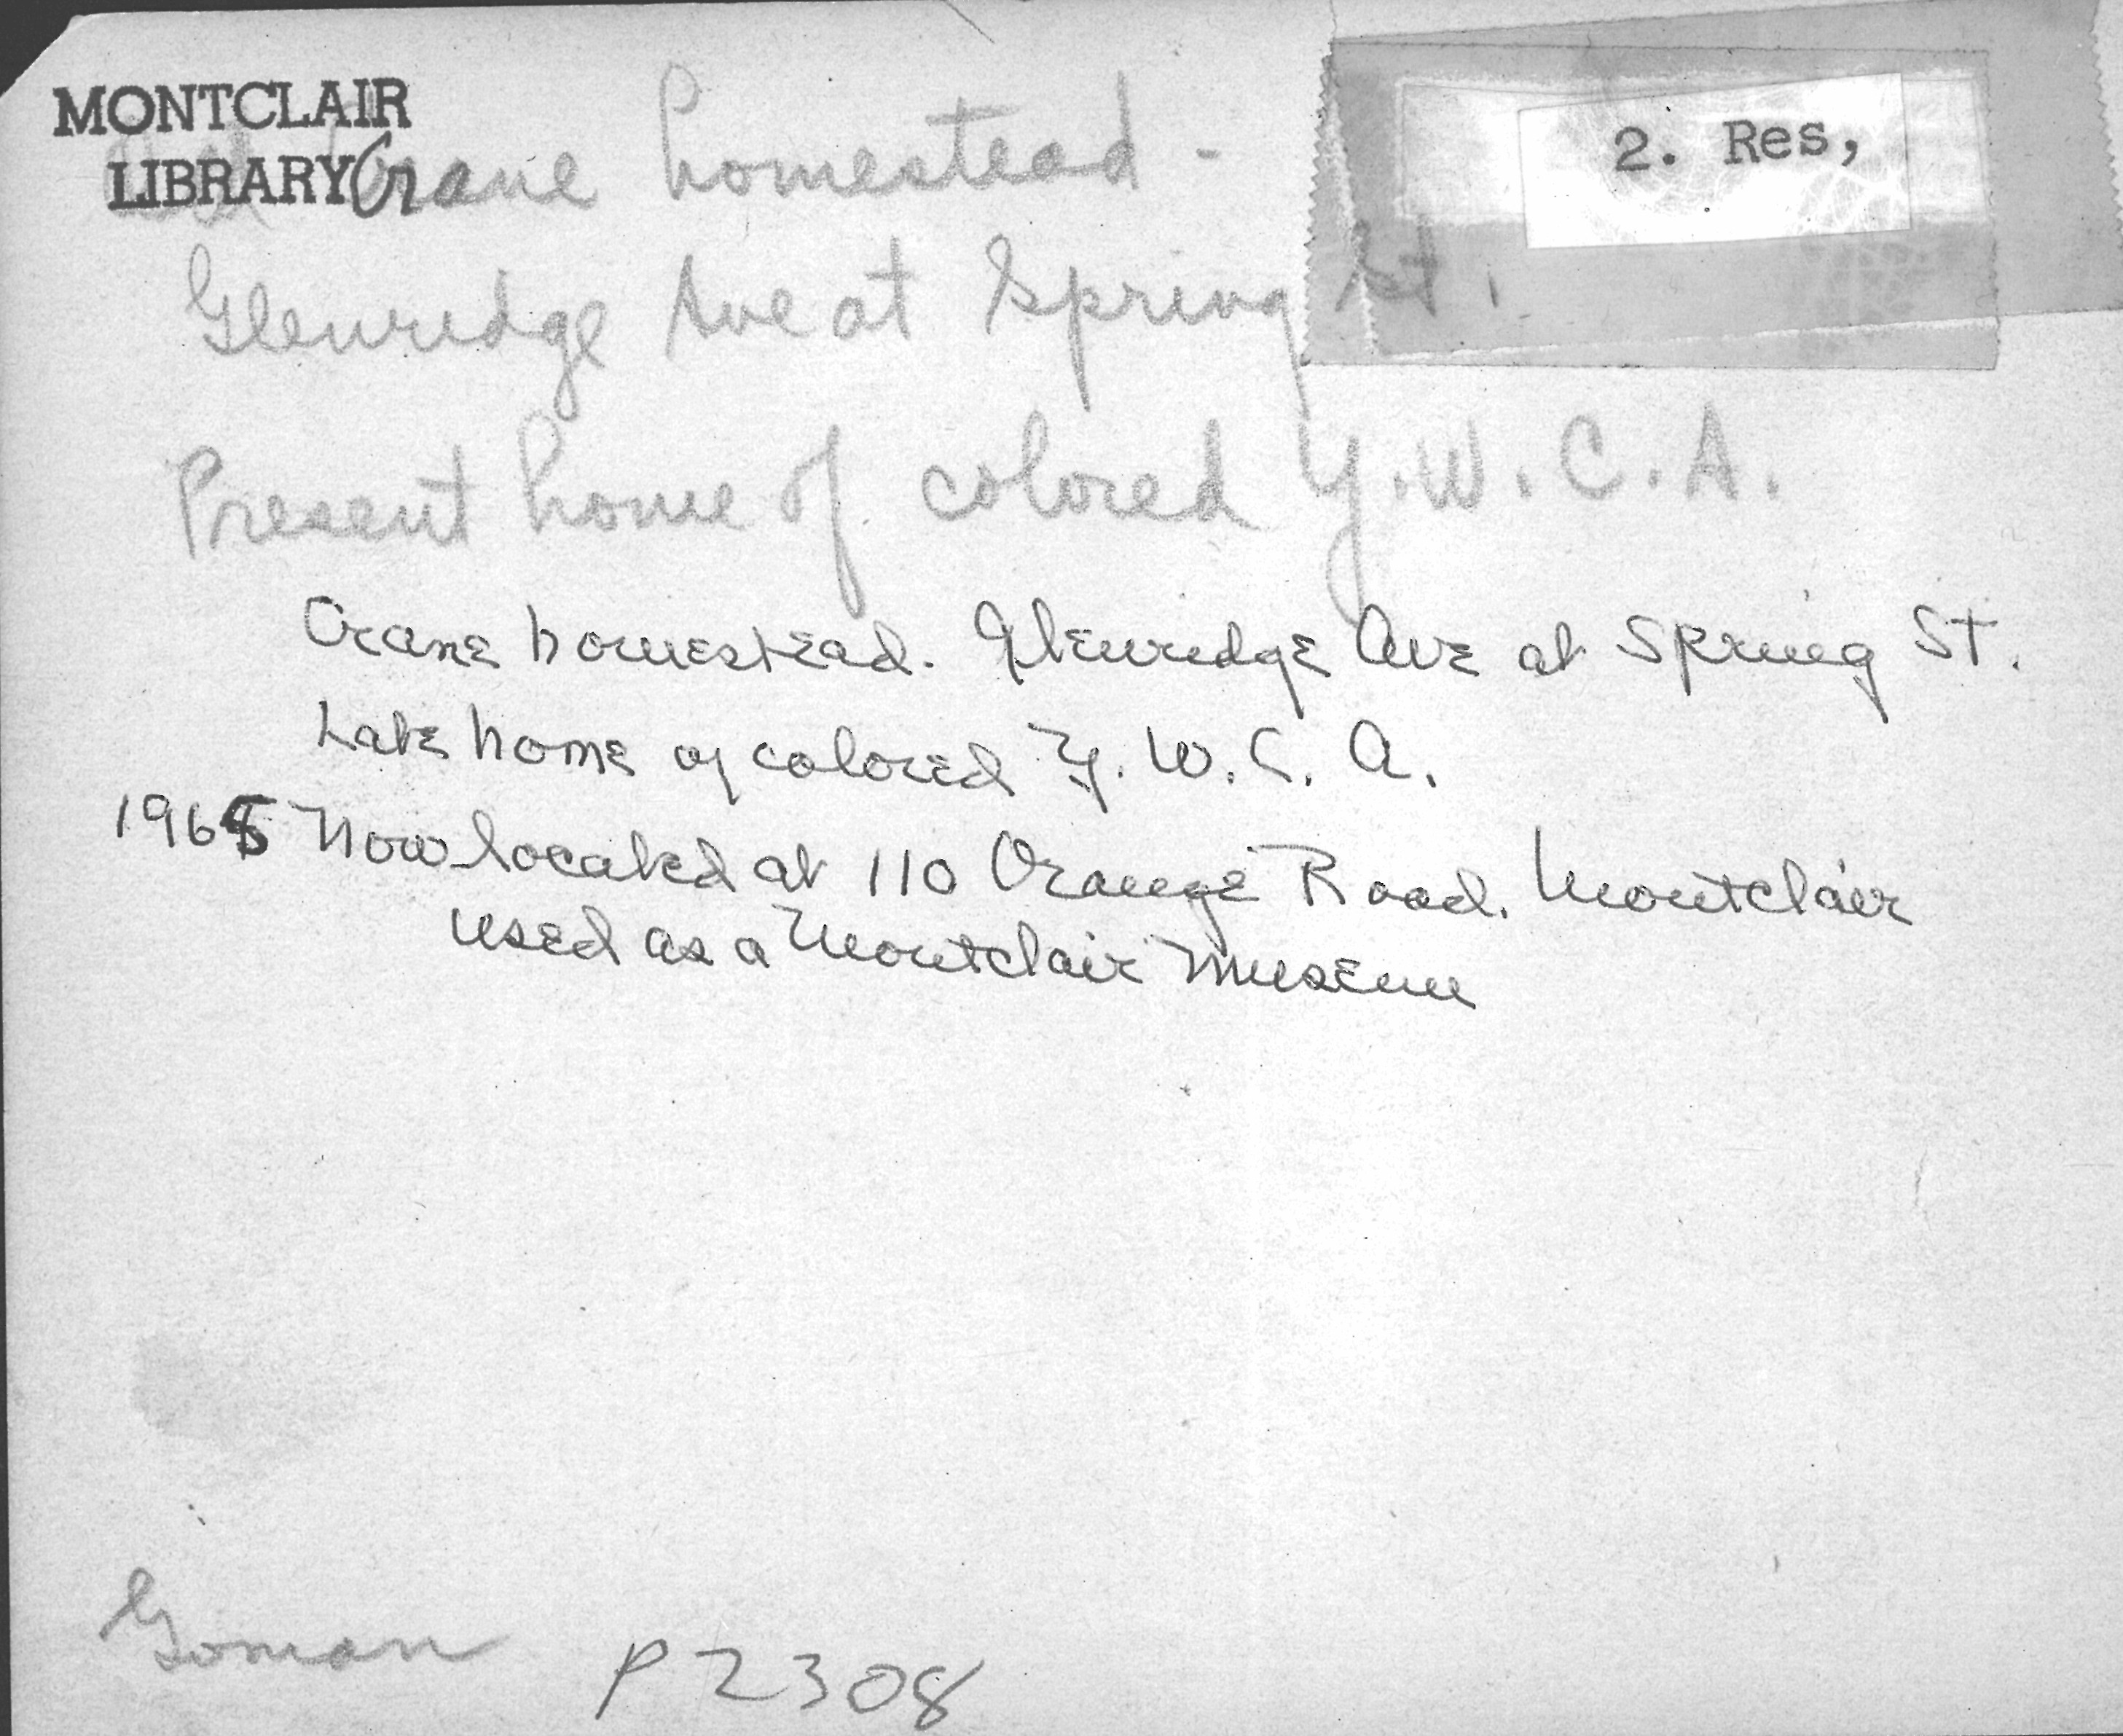 MONTCLAIR
LIBRARY
2. Res,
Crane homestead -
Glenridge Ave at Spring St.
Present home of colored Y.W.C.A.
Crane homestead. Glenridge Ave at Spring St.
Late home of colored Y.W.C.A.
1965 Now located at 110 Orange Road. Montclair
used as a Montclair Museum
Goman P2308